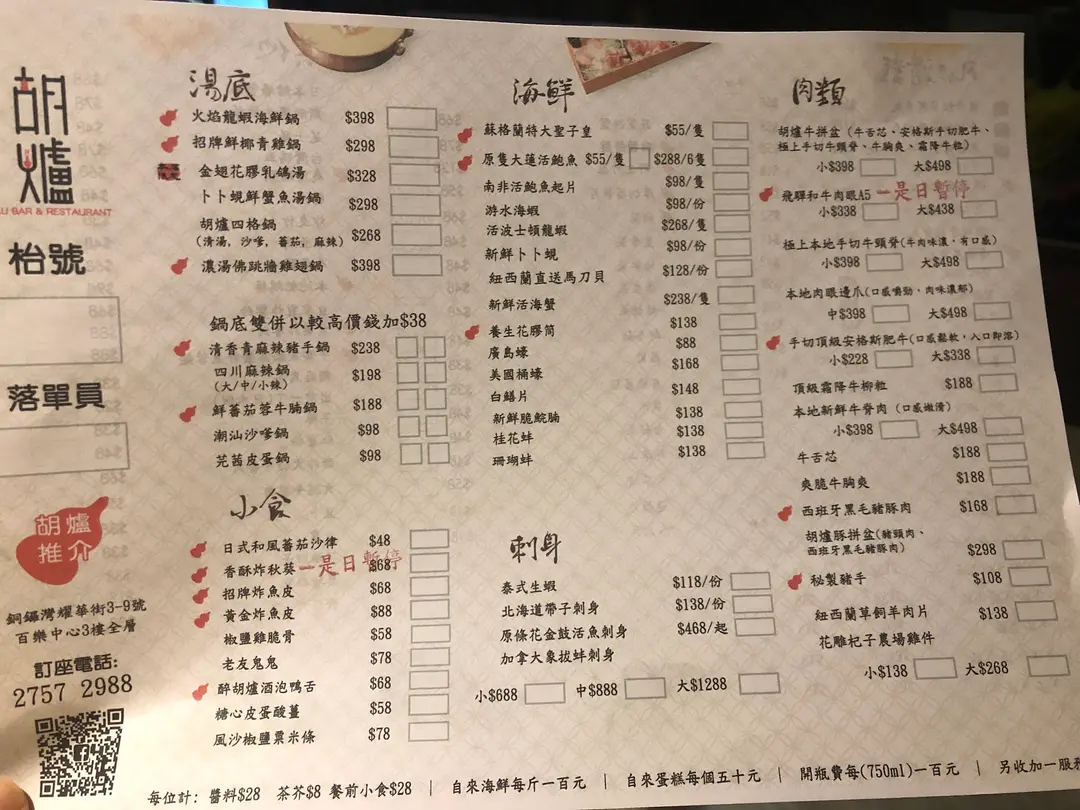 胡爐
BAR & RESTAURANT
枱號
落單員
胡爐
推介
銅鑼灣耀華街3-9號
百樂中心3樓全層
訂座電話:
2757 2988
湯底
火焰龍蝦海鮮鍋 $398
招牌鮮椰青雞鍋 $298
金翅花膠乳鴿湯 $328
卜卜蜆鮮蟹魚湯鍋 $298
胡爐四格鍋
(清湯, 沙嗲, 蕃茄, 麻辣) $268
濃湯佛跳牆雞翅鍋 $398
鍋底雙併以較高價錢加$38
清香青麻辣豬手鍋 $238
四川麻辣鍋 $198
(大/中/小辣)
鮮蕃茄蓉牛腩鍋 $188
潮汕沙嗲鍋 $98
芫茜皮蛋鍋 $98
小食
日式和風蕃茄沙律 $48
香酥炸秋葵 $68 一是日暫停
招牌炸魚皮 $68
黃金炸魚皮 $88
椒鹽雞脆骨 $58
老友鬼鬼 $78
醉胡爐酒泡鴨舌 $68
糖心皮蛋酸薑 $58
風沙椒鹽粟米條 $78
海鮮
蘇格蘭特大聖子皇 $55/隻
原隻大蓮活鮑魚 $55/隻 $288/6隻
南非活鮑魚起片 $98/隻
游水海蝦 $98/份
活波士頓龍蝦 $268/隻
新鮮卜卜蜆 $98/份
紐西蘭直送馬刀貝 $128/份
新鮮活海蟹 $238/隻
養生花膠筒 $138
廣島蠔 $88
美國桶蠔 $168
白鱔片 $148
新鮮脆鯇腩 $138
桂花蚌 $138
珊瑚蚌 $138
刺身
泰式生蝦 $118/份
北海道帶子刺身 $138/份
原條花金鼓活魚刺身 $468/起
加拿大象拔蚌刺身
小$688 中$888 大$1288
肉類
胡爐牛拼盆 (牛舌芯、安格斯手切肥牛、
極上手切牛頸脊、牛胸爽、霜降牛粒)
小$398 大$498
飛驒和牛肉眼A5 一是日暫停
小$338 大$438
極上本地手切牛頸脊(牛肉味濃, 有口感)
小$398 大$498
本地肉眼邊爪(口感嚼勁、肉味濃郁)
中$398 大$498
手切頂級安格斯肥牛(口感鬆軟, 入口即溶)
小$228 大$338
頂級霜降牛柳粒 $188
本地新鮮牛脊肉 (口感嫩滑)
小$398 大$498
牛舌芯 $188
爽脆牛胸爽 $188
西班牙黑毛豬豚肉 $168
胡爐豚拼盆(豬頸肉、
西班牙黑毛豬豚肉) $298
秘製豬手 $108
紐西蘭草飼羊肉片 $138
花雕杞子農場雞件
小$138 大$268
每位計: 醬料$28 茶芥$8 餐前小食$28 | 自來海鮮每斤一百元 | 自來蛋糕每個五十元 | 開瓶費每(750ml)一百元 | 另收加一服務